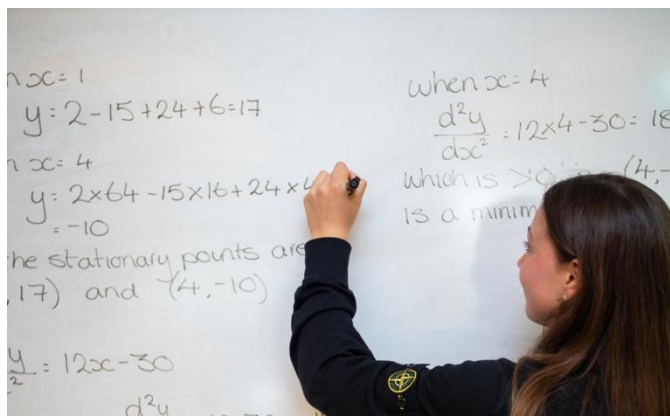 n x = 1
y = 2 - 15 + 24 + 6 = 17
n x = 4
y = 2 x 64 - 15 x 16 + 24 x 4
= -10
the stationary points are
, 17) and (4, -10)
y = 12x - 30
2
d²y
when x = 4
d²y
dx² = 12 x 4 - 30 = 18
which is >0 (4, -
is a minim